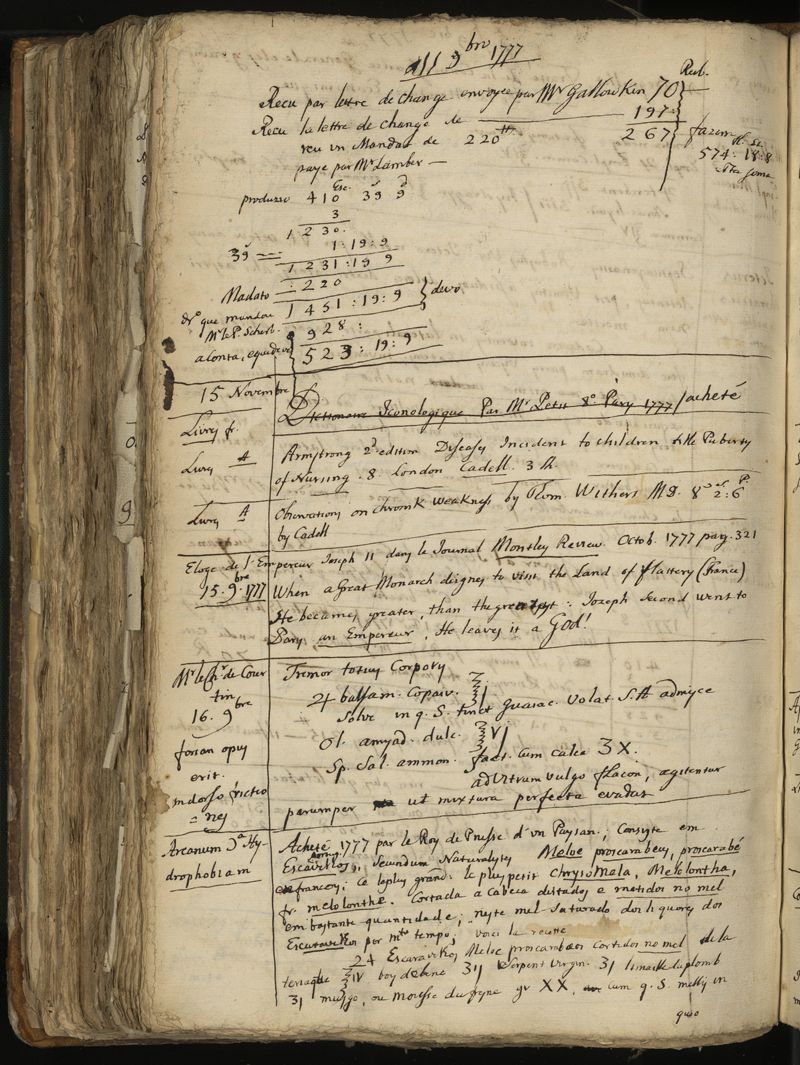 9bro 1777
Rub.
Recu par lettre de change envoyée par Mr Gallowkin 70
Recu la lettre de change de 197
267
reu un Mandat de 220 tt
fazem
574: 18: 8
paye par Mr Lamber —
produzio 410 39 9
3
1 230.
39 = 1:19:9
1231:19 9
Madato 220
1451:19:9 } devo
que mandou
Mr le P. Scherb. 928:
a conta, 523:19:9
15 Novembre
Dictionaire Iconologique Par Mr Petit 8o Pary 1777 / acheté
Livrej fr.
Livrej A
Armstrong 2d edition Diseasej Incident to children
of Nursing. 8. London Cadell. 3 sh.
Livrej A
Observationj on chronik weakness by Thom Withers M.D. 8o 2:6
by Cadell
Eloge de l'Empereur Joseph II danj le Journal Montley Review. Octob. 1777 pag. 321
15. 9bre 1777
When a Great Monarch deignej to visit the Land of flattery (france)
He becamej greater, than the greatest: Joseph Second went to
Parij an Empereur, He leavej it a God!
Mr le Ch. de Cour
tin
16. 9bre
forsan opuj
erit.
in dorso frictio
= nej
Tremor totiuj Corporij
balsam. Copaiv. ℥j
Solve in q. S. tinct guaiac. Volat. S. A admijce
Ol. amygd. dulc. ℥vj
Sp. Sal. ammon. fact. cum calce ʒ X.
ad Vitrum vulgo flacon, agitentur
parumper ut mixtura perfecta evadat
Arcanum Da Hy-
drophobiam
Acheté 1777 par le Roy de Prusse d'un Paysan; Consijte em
Escaravelhoj, secundum Naturalistej Meloe proscarabeuj, proscarabé
en francoij; le pluj grand: le pluj petit Chrysomela, Melolontha,
fr. melolonthe. Cortada a Cabeca e metidos no mel
em bastante quantidade; nejte mel saturado dos liquorej dos
Escaravelhos por mto tempo; voici la recette
24 Escaravelhoj Meloe proscarabaei Cortidos no mel de la
teriaque ℥iv boij debene ʒij Serpent Virgin. ʒj limaille du plomb
ʒj musgo, ou mousse du frene gr XX, cum q. S. mellij in
quo